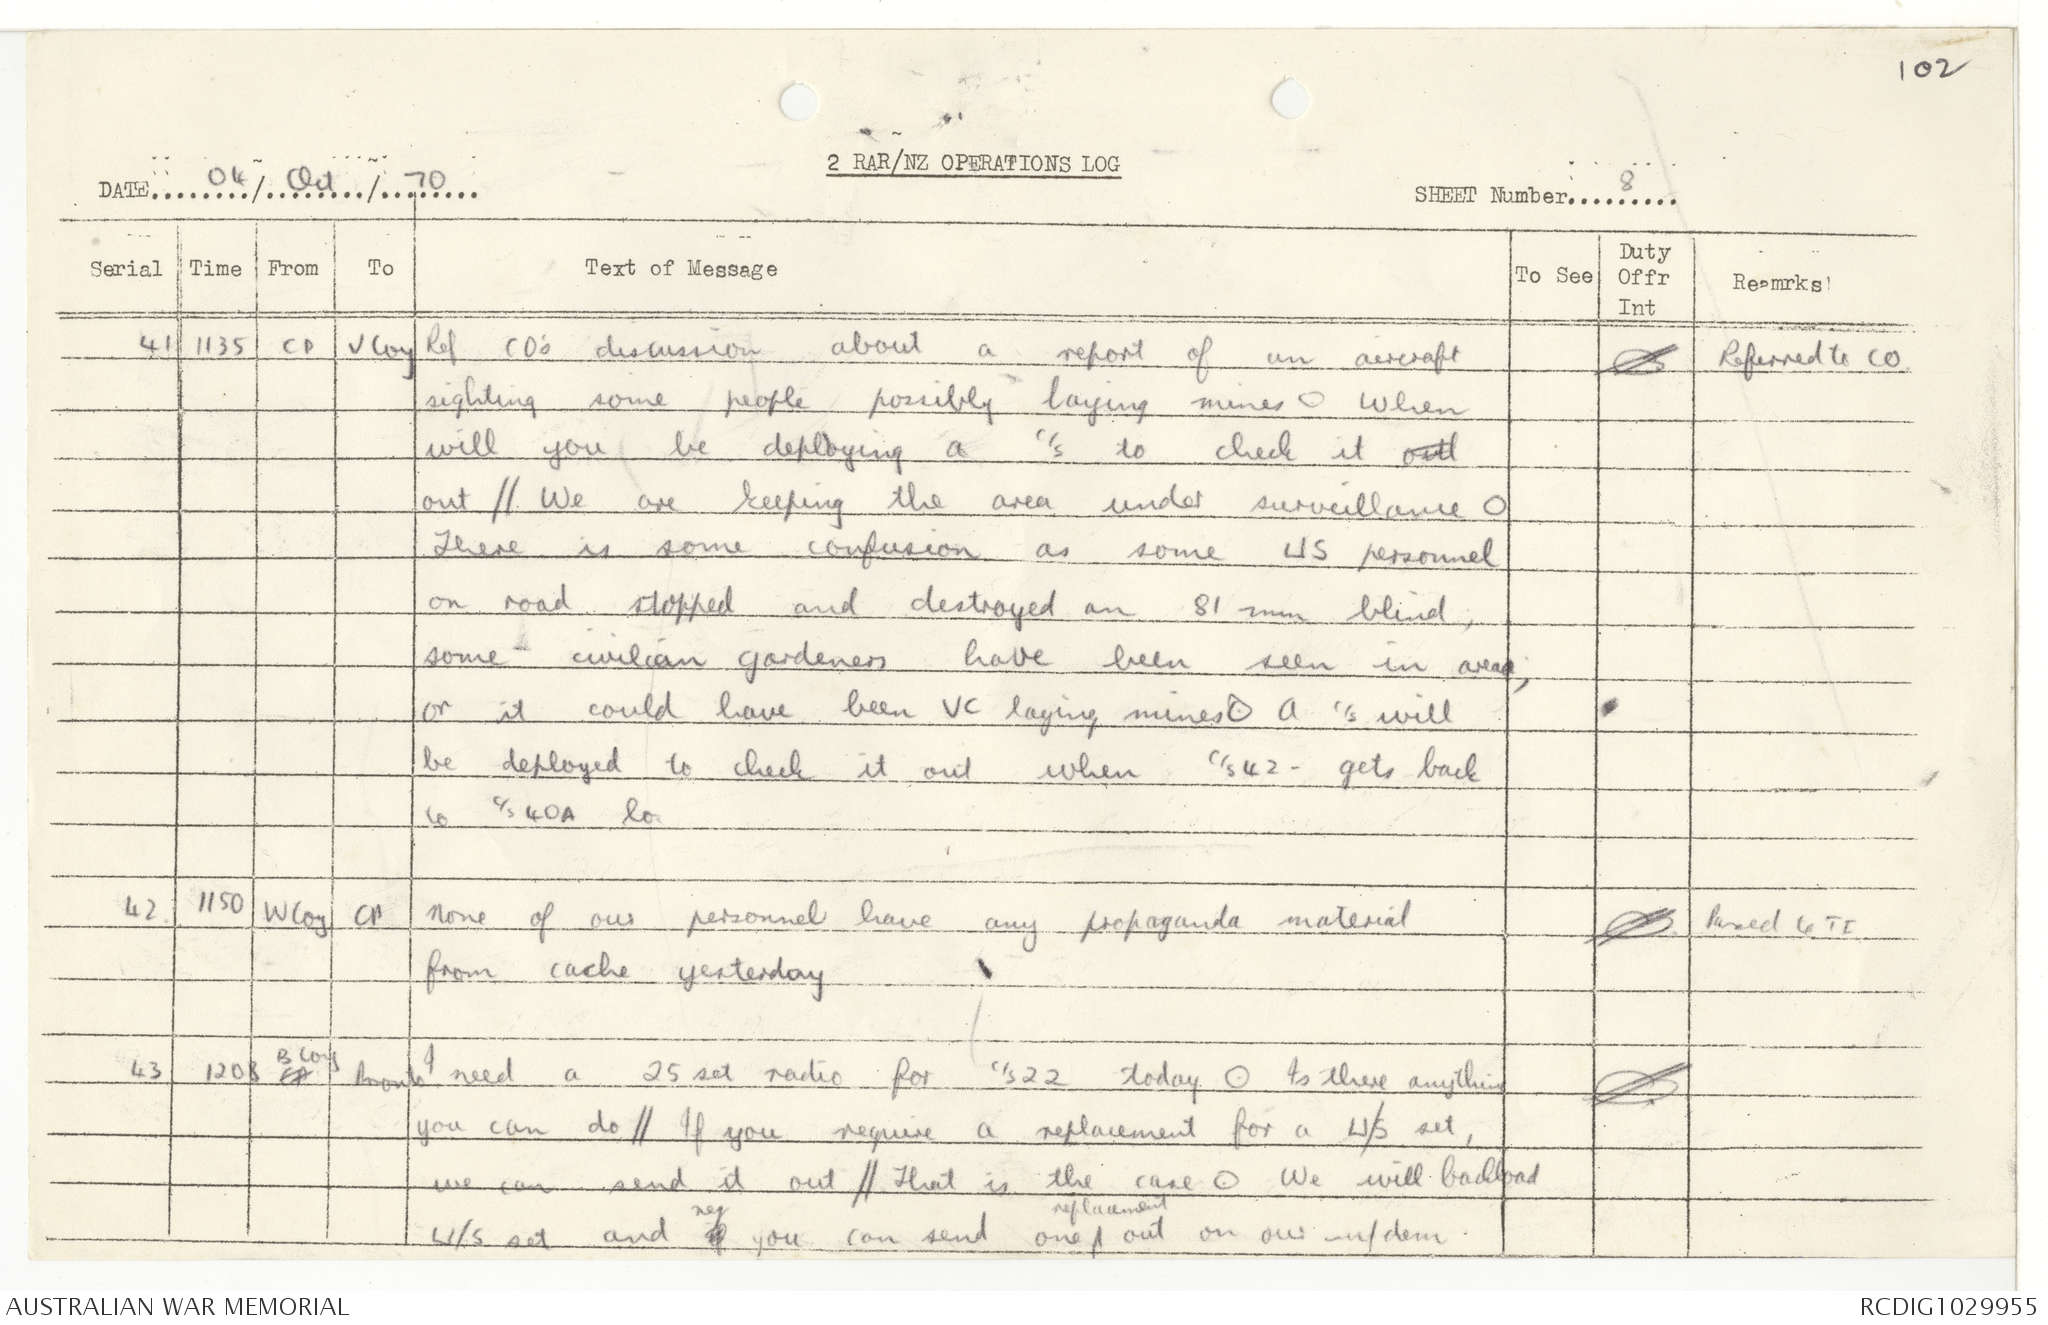 102
2 RAR/NZ OPERATIONS LOG
DATE 04 / Oct / 70
SHEET Number 8
Serial Time From To Text of Message To See Duty Offr Int Remarks
41 1135 CP V Coy Ref CO's discussion about a report of an aircraft Referred to CO
sighting some people possibly laying mines O When
will you be deploying a c/s to check it out
out // We are keeping the area under surveillance O
There is some confusion as some US personnel
on road stopped and destroyed an 81 mm blind,
some civilian gardeners have been seen in area,
or it could have been VC laying mines O A c/s will
be deployed to check it out when c/s 42- gets back
to c/s 40A loc
42 1150 W Coy CP None of our personnel have any propaganda material Passed to II
from cache yesterday
43 1208 B Coy CP Pronto I need a 25 set radio for c/s 22 today O Is there anything
you can do // If you require a replacement for a U/S set,
we can send it out // That is the case O We will backload
U/S set and req you can send one replacement out on our m/dem
AUSTRALIAN WAR MEMORIAL
RCDIG1029955